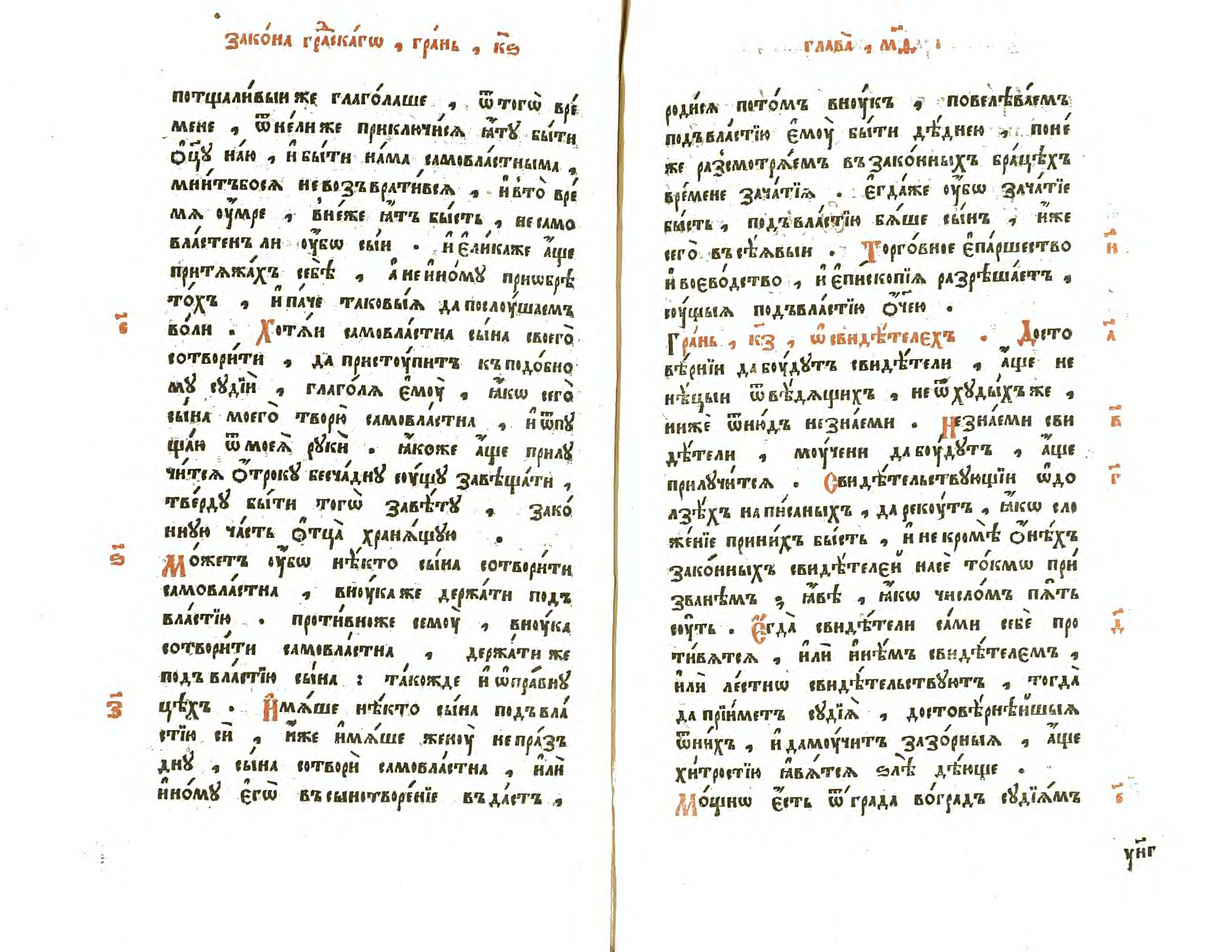 Зако́на гра́дскагѡ , гра́нь , к҃ѕ
потщали́выи же глаго́лаше , ѿ тогѡ̀ вре́
мене , ѿне́ли же приключи́сѧ ꙗ҆́тꙋ бы́ти
ѻ҆ц҃ꙋ на́ю , и҆ бы́ти на́ма самовла́стныма ,
мни́тъбосѧ невозъврати́всѧ , и҆ в то̀ вре́
мѧ ᲂу҆́мре , в не́же ꙗ҆́тъ бы́сть , не само
вла́стенъ ли ᲂу҆́бѡ сы́и . и҆ є҆ли́ка же а҆́ще
притѧжа́хъ себѣ̀ , а҆ не и҆но́мꙋ приѡбрѣ
то́хъ , и҆ па́че таковы́ѧ да послоу́шаемъ
во́ли . Хотѧ́и самовла́стна сы́на своего̀
сотвори́ти , да пристоу́питъ къ подо́бно
мꙋ сꙋдїѝ , глаго́лѧ є҆моу̀ , ꙗ҆́кѡ сего̀
сы́на моего̀ творю̀ самовла́стна , и҆ ѿпꙋ
ща́ю ѿ моеѧ̀ рꙋкѝ . ꙗ҆́коже а҆́ще прилꙋ
чи́тсѧ ѻ҆́трокꙋ бесча́днꙋ соу́щꙋ завѣща́ти ,
тве́рдꙋ бы́ти тогѡ̀ завѣ́тꙋ , зако́
ннꙋю ча́сть ѻ҆тца̀ хранѧ́щꙋю .
Мо́жетъ ᲂу҆́бѡ нѣ́кто сы́на сотвори́ти
самовла́стна , вноу́ка же держа́ти подъ
вла́стїю . проти́вно же семоу̀ , вноу́ка
сотвори́ти самовла́стна , держа́ти же
подъ вла́стїю сы́на : та́кожде и҆ ѡ҆ пра́внꙋ
цѣ́хъ . И҆мѧ́ше нѣ́кто сы́на подъ вла́
стїю сѝ , и҆́же и҆мѧ́ше женоу̀ непра́зъ
днꙋ , сы́на сотворѝ самовла́стна , и҆лѝ
и҆но́мꙋ є҆гѡ̀ въ сынотворе́нїе въда́стъ ,
є҃
ѕ҃
з҃
глава̀ , м҃д
роди́сѧ пото́мъ вноу́къ , повелѣва́емъ
подъ вла́стїю є҆моу̀ бы́ти дѣ́днею , поне́
же разсмотрѧ́емъ въ зако́нныхъ бра́цѣхъ
вре́мене зача́тїѧ . є҆гда́ же ᲂу҆́бѡ зача́тїе
бы́сть , подъ вла́стїю бѧ́ше сы́нъ , и҆́же
сего̀ въсѣ́ѧвыи . Торго́вное є҆па́ршество
и҆ воево́дство , и҆ є҆пископїѧ разрѣша́етъ ,
соу́щыѧ подъ вла́стїю ѻ҆́чею .
Гра́нь , к҃з , ѡ҆ свидѣ́телехъ . Досто
вѣ́рнїи да боу́дꙋтъ свидѣ́тели , а҆́ще не
нѣ́цыи ѿ вѣ́дѧщихъ , не ѿ хꙋды́хъ же ,
нижѐ ѿню́дъ незна́еми . Незна́еми сви
дѣ́тели , моу́чени да боу́дꙋтъ , а҆́ще
прилꙋчи́тсѧ . Свидѣ́тельствꙋющїи ѡ҆ до
лзѣ́хъ напи́саныхъ , да рекоу́тъ , ꙗ҆́кѡ сло
же́нїе при ни́хъ бы́сть , и҆ не кромѣ̀ ѻ҆нѣ́хъ
зако́нныхъ свидѣ́телей на сѐ то́кмѡ при
зва́нѣмъ ; ꙗ҆́вѣ , ꙗ҆́кѡ число́мъ пѧ́ть
соу́ть . Є҆гда̀ свидѣ́тели са́ми себѐ про
ти́вѧтсѧ , и҆лѝ и҆нѣ́мъ свидѣ́телемъ ,
и҆лѝ ле́стнѡ свидѣ́тельствꙋютъ , тогда̀
да прїи́метъ сꙋдїѧ̀ , достовѣ́рнѣйшыѧ
ѿ ни́хъ , и҆ да моу́читъ зазо́рныѧ , а҆́ще
хи́тростїю ꙗ҆вѧ́тсѧ ѕлѣ̀ дѣ́юще .
Мо́щнѡ є҆́сть ѿ гра́да во гра́дъ сꙋдїѧ́мъ
и҃
а҃
в҃
г҃
д҃
є҃
ун҃г